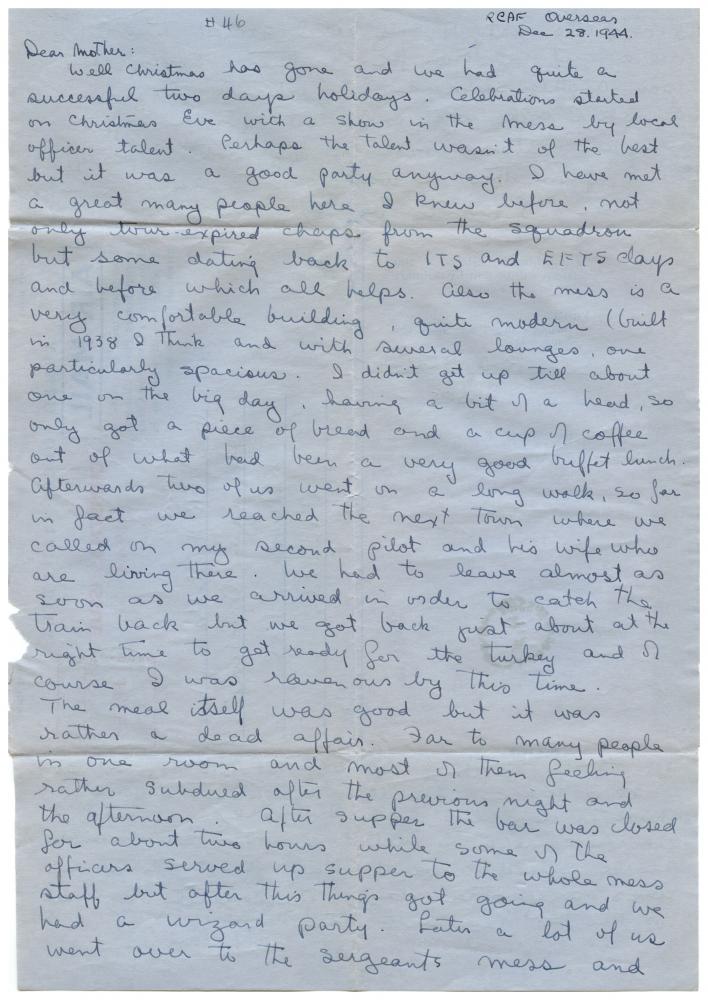 # 46
RCAF Overseas
Dec 28. 1944.
Dear Mother:
Well Christmas has gone and we had quite a
successful two days holidays. Celebrations started
on Christmas Eve with a show in the mess by local
officer talent. Perhaps the talent wasn't of the best
but it was a good party anyway. I have met
a great many people here I knew before, not
only tour-expired chaps from the squadron
but some dating back to ITS and EFTS days
and before which all helps. Also the mess is a
very comfortable building, quite modern (built
in 1938 I think and with several lounges, one
particularly spacious. I didn't get up till about
one on the big day, having a bit of a head, so
only got a piece of bread and a cup of coffee
out of what had been a very good buffet lunch.
Afterwards two of us went on a long walk, so far
in fact we reached the next town where we
called on my second pilot and his wife who
are living there. We had to leave almost as
soon as we arrived in order to catch the
train back but we got back just about at the
right time to get ready for the turkey and of
course I was ravenous by this time.
The meal itself was good but it was
rather a dead affair. Far to many people
in one room and most of them feeling
rather subdued after the previous night and
the afternoon. After supper the bar was closed
for about two hours while some of the
officers served up supper to the whole mess
staff but after this things got going and we
had a wizard party. Later a lot of us
went over to the sergeants mess and